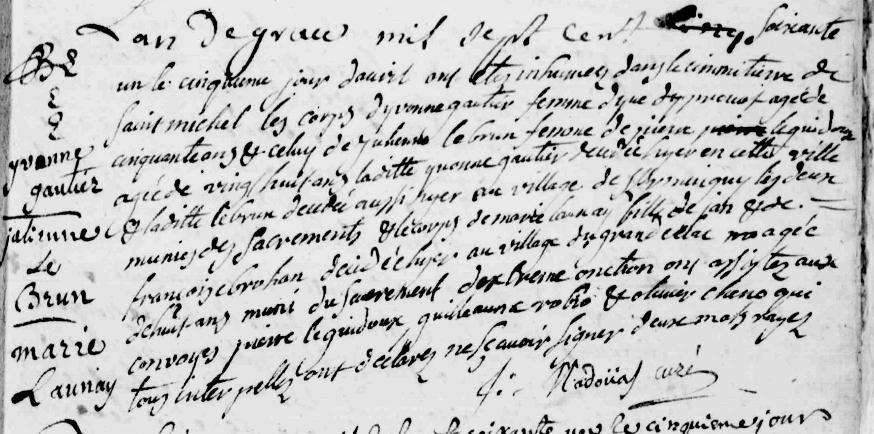 Lan De grace mil Sept Cent Soixante
un le cinquieme jour davril ont etes inhumées dans le cimmitierre de
Saint michel les corps dyvonne gautier femme dyve agée de
cinquante ans & celuy de Julienne le brun femme de pierre leguidoux
agée de vingt huit ans laditte yvonne gautier decedée hyer en cette ville
& laditte lebrun decedée aussi hyer au village de les deux
munies des Sacrements & le corps de marie launay fille de jan & de
francoise brohan decedée hyer au village du grand agée
de huit ans muni du Sacrement dextreme onction ont assistez aux
convoyes pierre leguidoux guilleaume robo & olivier cheno qui
tous interpellez ont declarez ne scavoir signer deux mots rayez
J: Nadouas curé
BE
E
E
yvonne
gautier
julienne
Le
Brun
marie
Launay
Soixante un le cinquieme jour